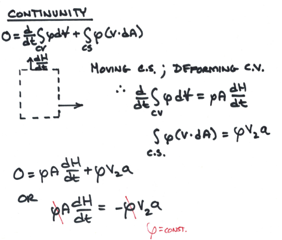 CONTINUNITY
0 = d/dt ∫_CV ρdV + ∫_CS ρ(V·dA)
dH/dt
MOVING C.S. ; DEFORMING C.V.
∴ d/dt ∫_CV ρdV = ρA dH/dt
∫_C.S. ρ(V·dA) = ρV₂a
0 = ρA dH/dt + ρV₂a
OR
ρA dH/dt = -ρV₂a
ρ=CONST.